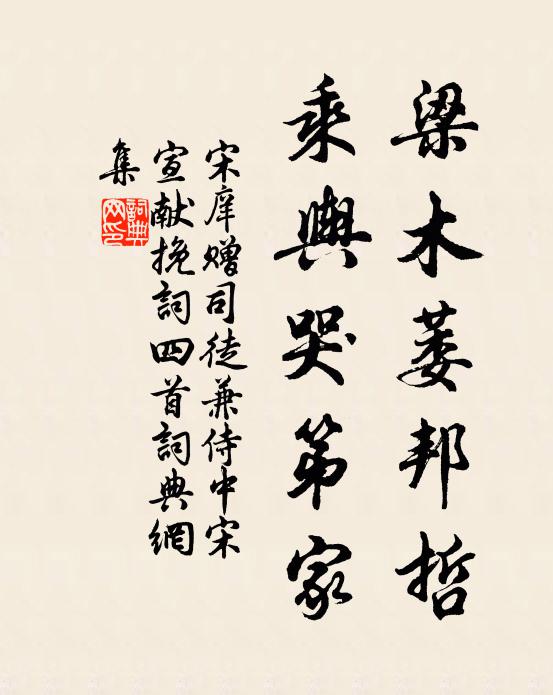 梁木萎邦哲
乘輿哭第家
宋庠赠司徒兼侍中宋
宣献挽詞四首詞典網
集
詞典網印